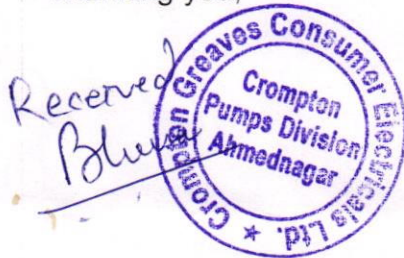 Received
Crompton Greaves Consumer Electricals Ltd. ★
Crompton
Pumps Division
Ahmednagar